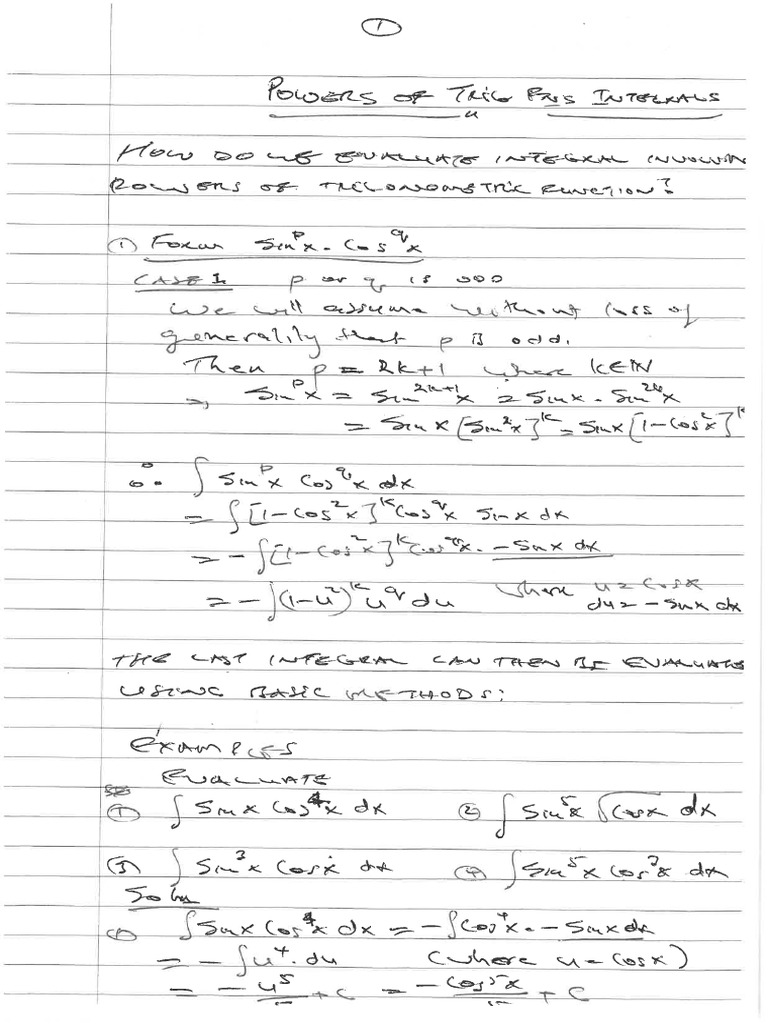 1
POWERS OF TRIG FNS INTEGRALS
HOW DO WE EVALUATE INTEGRAL INVOLVIN
POWERS OF TRIGONOMETRIC FUNCTION?
① FORM Sin^p x · Cos^q x
CASE 1 p or q is ODD
We will assume without loss of
generality that p is odd.
Then p = 2k+1 where k∈N
⇒ Sin^p x = Sin^{2k+1} x = Sin x · Sin^{2k} x
= Sin x [Sin^2 x]^k = Sin x [1-Cos^2 x]^k
∴ ∫ Sin^p x Cos^q x dx
= ∫ [1-Cos^2 x]^k Cos^q x Sin x dx
= -∫ [1-Cos^2 x]^k Cos^q x · -Sin x dx
= -∫ (1-u^2)^k u^q du where u = Cos x
du = -Sin x dx
THE LAST INTEGRAL CAN THEN BE EVALUATED
USING BASIC METHODS:
EXAMPLES
EVALUATE
① ∫ Sin x Cos^4 x dx ② ∫ Sin^5 x √Cos x dx
③ ∫ Sin^3 x Cos x dx ④ ∫ Sin^5 x Cos^3 x dx
Soln
① ∫ Sin x Cos^4 x dx = -∫ Cos^4 x · -Sin x dx
= -∫ u^4 · du (where u = Cos x)
= -u^5/5 + C = -Cos^5 x/5 + C